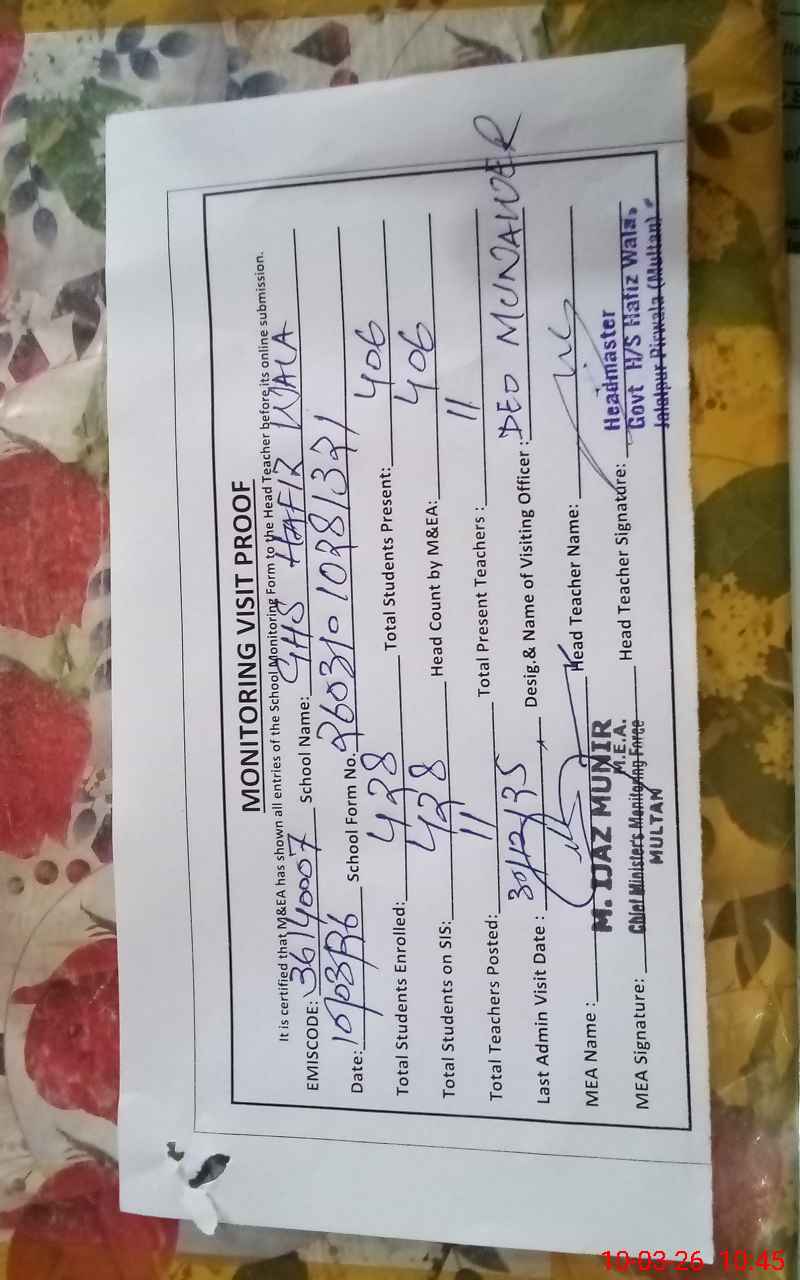 MONITORING VISIT PROOF
It is certified that M&EA has shown all entries of the School Monitoring Form to the Head Teacher before its online submission.
EMISCODE: 36140007 School Name: GHS HAFIZ WALA
Date: 10/03/26 School Form No. 26031010281321
Total Students Enrolled: 428 Total Students Present: 406
Total Students on SIS: 428 Head Count by M&EA: 406
Total Teachers Posted: 11 Total Present Teachers : 11
Last Admin Visit Date : 30/12/25 Desig.& Name of Visiting Officer : DEO MUNAWER
MEA Name : M. IJAZ MUNIR Head Teacher Name:
M.E.A.
MEA Signature: Chief Minister's Monitoring Force Head Teacher Signature:
MULTAN
Headmaster
Govt H/S Hafiz Wala
Jalalpur Pirwala (Multan)
10-03-26 10:45